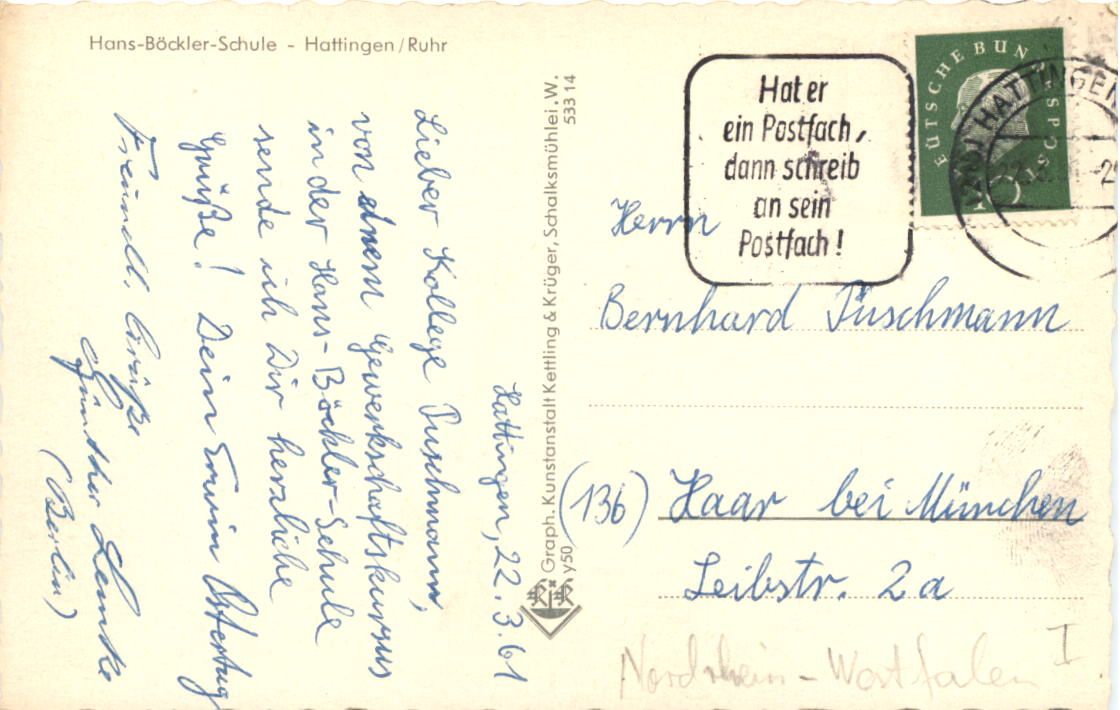 Hans-Böckler-Schule - Hattingen/Ruhr
Hattingen, 22.3.61
Lieber Kollege Puschmann,
von einem Gewerkschaftskursus
in der Hans-Böckler-Schule
sende ich Dir herzliche
Grüße! Dein Erwin Ostertag
Freundl. Grüße
Günther Lemke
(Berlin)
Graph. Kunstanstalt Kettling & Krüger, Schalksmühle i.W.
y50
533 14
Hat er
ein Postfach,
dann schreib
an sein
Postfach!
DEUTSCHE BUNDESPOST
10
HATTINGEN
Herrn
Bernhard Puschmann
(13b) Haar bei München
Leibstr. 2a
Nordrhein-Westfalen
I